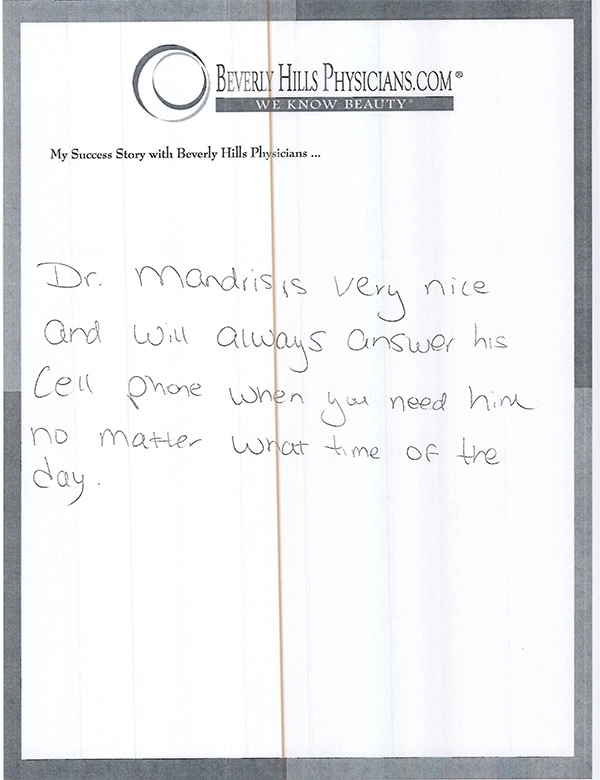 BEVERLY HILLS PHYSICIANS.COM®
WE KNOW BEAUTY®
My Success Story with Beverly Hills Physicians ...
Dr. Mandris is very nice
and will always answer his
Cell phone when you need him
no matter what time of the
day.